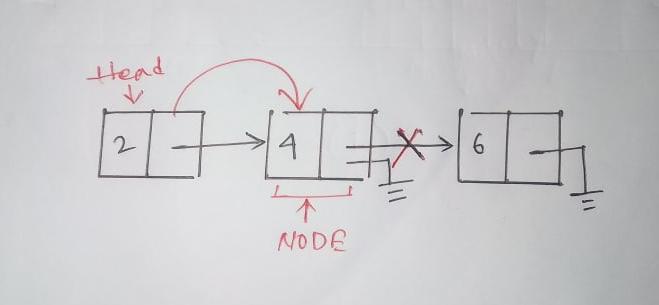 Head
2
4
6
NODE